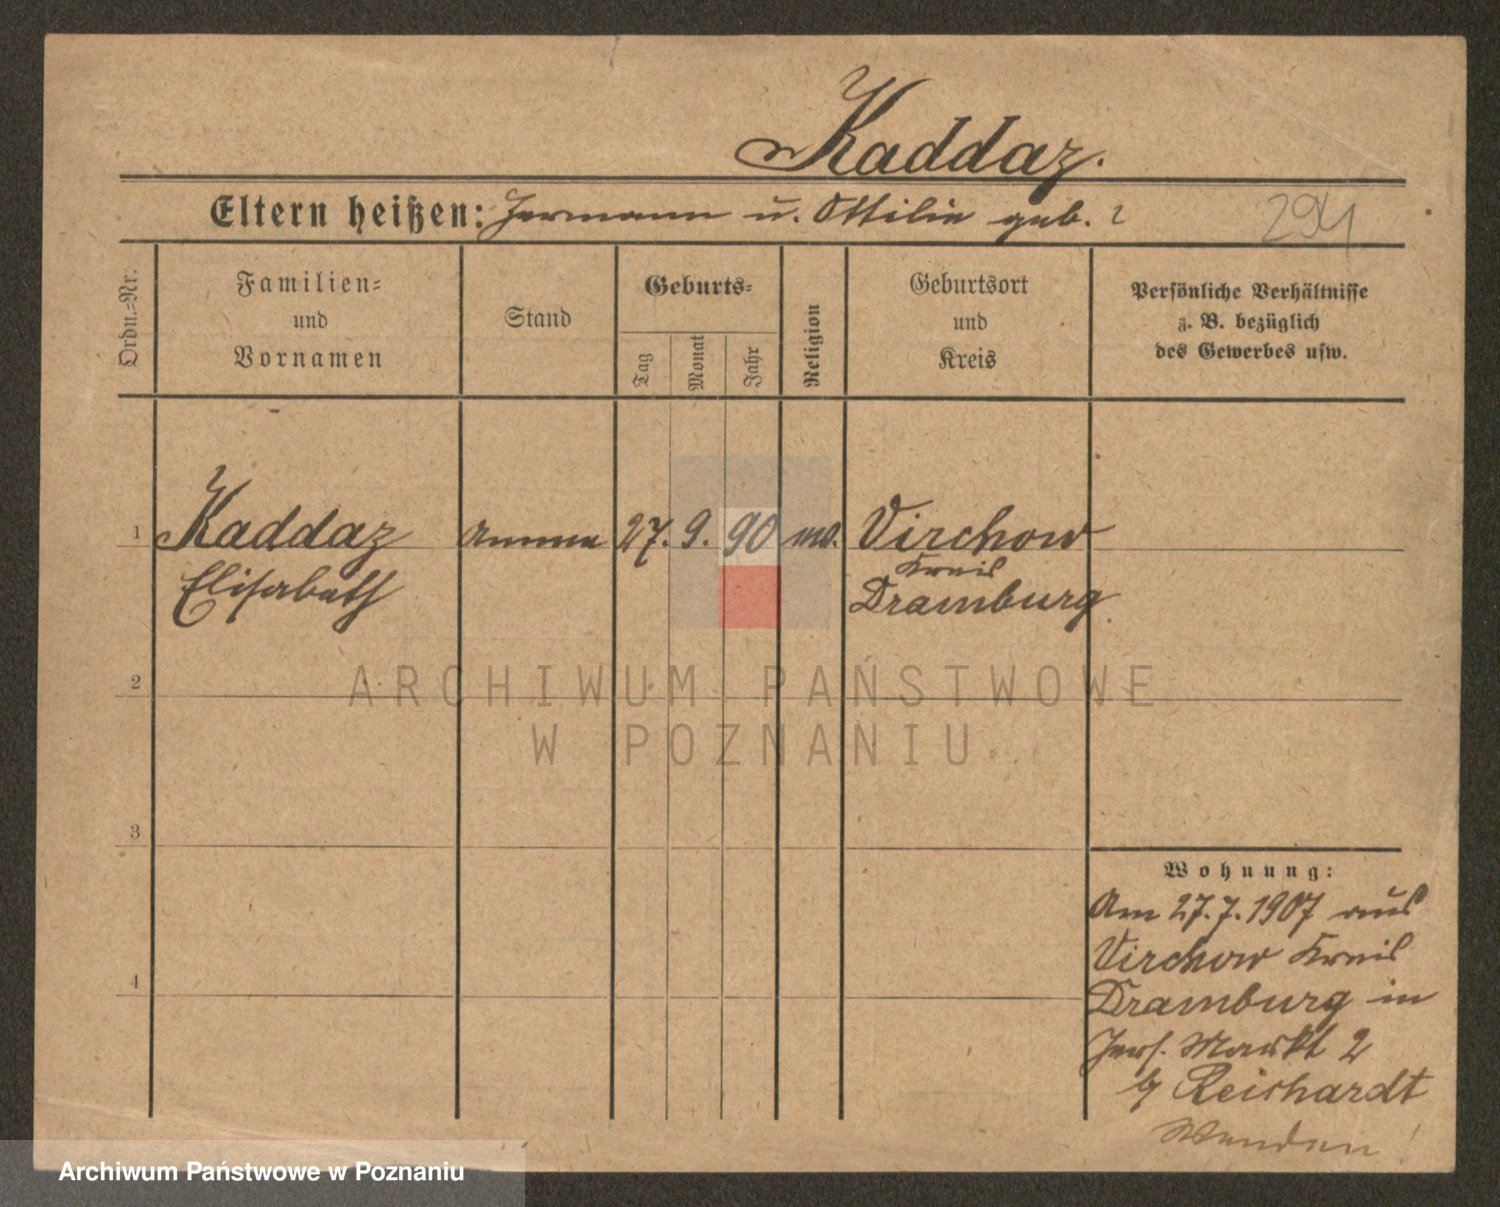 Kaddaz.
Eltern heißen: Hermann u. Ottilie geb. ?
294
Ordn.-Nr.
Familien-
und
Vornamen
Stand
Geburts-
Tag
Monat
Jahr
Religion
Geburtsort
und
Kreis
Persönliche Verhältnisse
z. B. bezüglich
des Gewerbes usw.
1 Kaddaz Amme 27. 9. 90 Virchow
Elisabeth
Kreis
Dramburg.
2
ARCHIWUM PAŃSTWOWE
W POZNANIU
3
Wohnung:
Am 27.7.1907 aus
Virchow Kreis
4
Dramburg in
Jers. Markt 2
b/ Reichardt
Wenden!
Archiwum Państwowe w Poznaniu